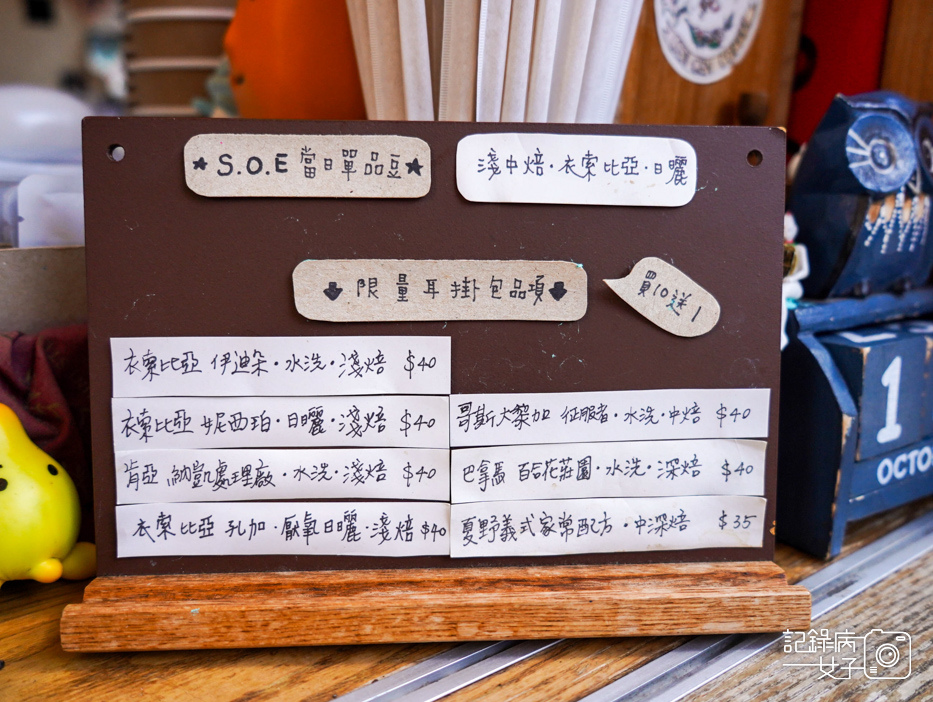 ★S.O.E 當日單品豆★
淺中焙·衣索比亞·日曬
↓ 限量耳掛包品項 ↓
買10送1
衣索比亞 伊迪朵·水洗·淺焙 $40
衣索比亞 妮西珀·日曬·淺焙 $40
肯亞 納凱處理廠·水洗·淺焙 $40
衣索比亞 孔加·厭氧日曬·淺焙 $40
哥斯大黎加 征服者·水洗·中焙 $40
巴拿馬 百合花莊園·水洗·深焙 $40
夏野義式家常配方·中深焙 $35
1
OCTO
記錄病
女子